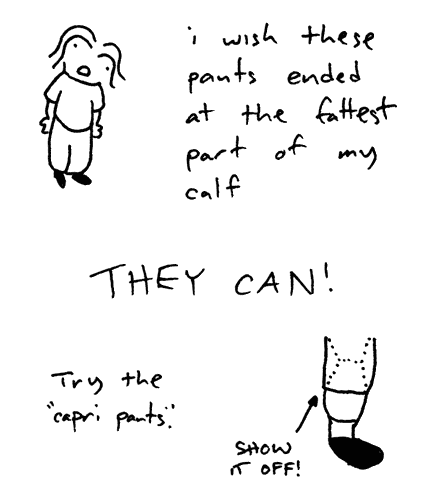 i wish these
pants ended
at the fattest
part of my
calf
THEY CAN!
Try the
"capri pants."
SHOW
IT OFF!